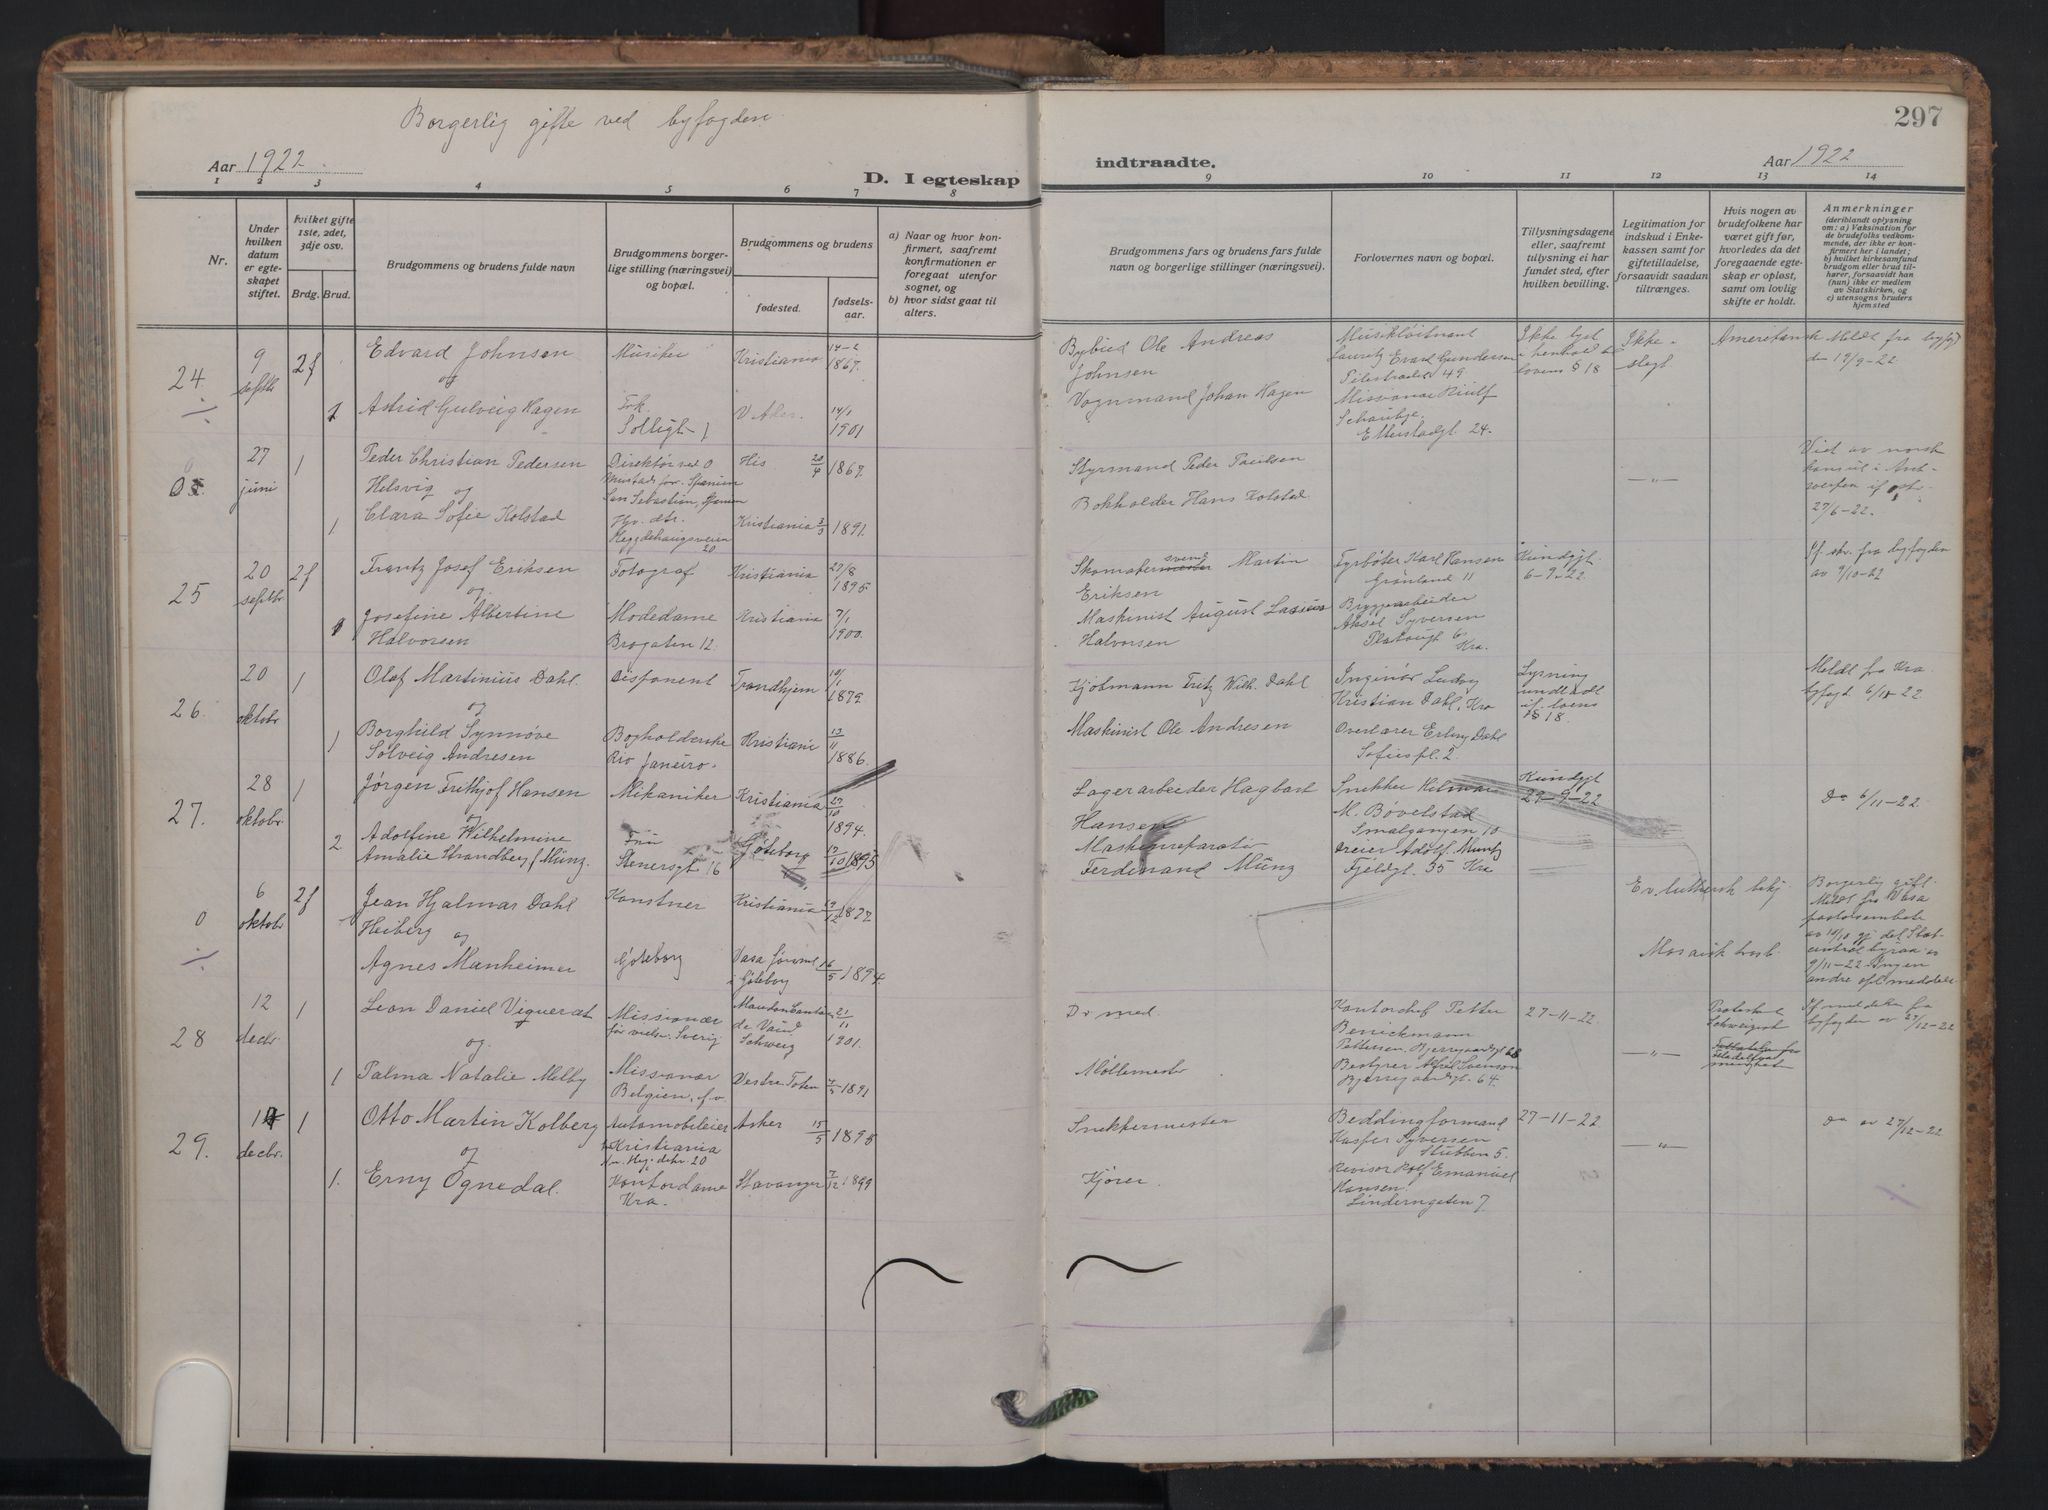 Borgerlig gifte ved byfogden
297
Aar 1922
D. I egteskap
indtraadte.
Aar 1922
1 2 3 4 5 6 7 8 9 10 11 12 13 14
Nr.
Under hvilken datum er egteskapet stiftet.
hvilket gifte 1ste, 2det, 3dje osv.
Brdg. Brud.
Brudgommens og brudens fulde navn
Brudgommens borgerlige stilling (næringsvei) og bopæl.
Brudgommens og brudens
fødested.
fødselsaar.
a) Naar og hvor konfirmert, saafremt konfirmationen er foregaat utenfor sognet, og
b) hvor sidst gaat til alters.
Brudgommens fars og brudens fars fulde navn og borgerlige stillinger (næringsvei).
Forlovernes navn og bopæl.
Tillysningsdagene eller, saafremt tillysning ei har fundet sted, efter hvilken bevilling.
Legitimation for indskud i Enkekassen samt for giftetilladelse, forsaavidt saadan tiltrænges.
Hvis nogen av brudefolkene har været gift før, hvorledes da det foregaaende egteskap er opløst, samt om lovlig skifte er holdt.
Anmerkninger
(deriblandt oplysning om: a) Vaksination for de brudefolks vedkommende, der ikke er konfirmert her i landet; b) hvilket kirkesamfund brudgom eller brud tilhører, forsaavidt han (hun) ikke er medlem av Statskirken, og c) utensogns bruders hjemsted
24. 9 septbr 2f
Edvard Johnsen
og
Musiker
Kristiania 14-2 1867.
1 Astrid Gulveig Hagen
Frk.
V Aker. 14/1 1901
Ole Andreas
Johnsen
Vognmand Johan Hagen
Lauritz Evard Gundersen
Pilestradet 49
Etterstadgt. 24.
Ikke lyst
i henhold til
lovens § 18
Ikke
Meldt fra byfogd
den 12/9-22.
27 juni 1
Peder Christian Pedersen
Helsvig og
Direktør ved O
San Sebastian, Spanien
His 20/4 1867.
1 Clara Sofie Kolstad
Hv. dtr.
Heggdehaugsveien 20
Kristiania 3/3 1891.
Styrmand Peder Paulsen
Bokholder Hans Kolstad.
—"—
Viet av norsk
konsul i Antwerpen
27/6-22.
25 20 septbr. 2f
Frantz Josef Eriksen
og
Fotograf
Kristiania 29/8 1895
1 Josefine Albertine
Halvorsen
Modedame
Brogaten 12.
Kristiania 7/1 1900.
Skomakersvend Martin
Eriksen
Maskinist August
Halvorsen
Fyrbøter Karl Hansen
Grønland 11
Bryggearbeider
Aksel Syversen
Platougt 6
Kra.
Kundgjt.
6-9-22.
If. skr. fra byfogden
av 9/10-22
26. 20 oktobr 1
Olaf Martinius Dahl.
og
Disponent
Trondhjem 10/11 1879.
1 Borghild Synnøve
Solveig Andresen
Bogholderske
Rio Janeiro.
Kristiania 13/11 1886.
Kjøbmann Fritz Wilh. Dahl
Maskinist Ole Andresen
Inginiør Ludvig
Kristian Dahl, Kra
Overlærer Erling Dahl
Sofiespl. 2.
Lysning
undladt
if. lovens
§ 18.
Meldt fra Kra.
byfogd 6/11-22.
27. 28 oktobr. 1
Jørgen Frithjof Hansen
og
Mekaniker
Kristiania 27/10 1894.
2 Adolfine Wilhelmine
Amalie Strandberg f. Münz.
Fru
Stenersgt 16
Gøteborg 17/10 1895
Lagerarbeider Hagbart
Hansen
Maskinreparatør
Ferdinand Münz
Snekker Hilmar
M. Bøvelstad
Smalgangen 10
Dreier Adolf Muntz
Fjeldgt. 35 Kra
Kundgjt
29-9-22
Do 6/11-22.
0 6 oktobr 2f
Jean Hjalmar Dahl
Heiberg og
Kunstner
Kristiania 19/12
Agnes Manheimer
Gøteborg
Vasa forsml.
i Gøteborg 16/5 1894.
Ev. luthersk bekj.
Mosaisk trosb.
Borgerlig gift.
Meldt fra Vasa
pastorsembete
28 12 decbr. 1
Leon Daniel Vigueret
og
Missionær
før vielsen. Sverig
de Vaud
Schweiz
21/11 1901.
1 Palma Natalie Melby
Missionær
Belgien, f.v.
Vestre Toten 7/5 1891
Dr med.
Møllemester
Kontorchef Petter
Benickmann
Pettersen. Bjerregaardsgt 68
Bestyrer Alfred Svenson
Bjerregaardsgt. 64.
27-11-22
—"—
byfogden av 27/12-22
29. 17 decbr. 1
Otto Martin Kolberg
og
Automobileier
Kristiania
Asker 15/5 1895
1. Erny Ognedal.
Kontordame
Kra.
Stavanger 7/12 1899
Snekkermester
Kjører.
Beddingformand
Kasper Syversen
Stubben 5.
Revisor Rolf Emanuel
Hansen.
Linderngaten 7
27-11-22
—"—
Do av 27/12-22